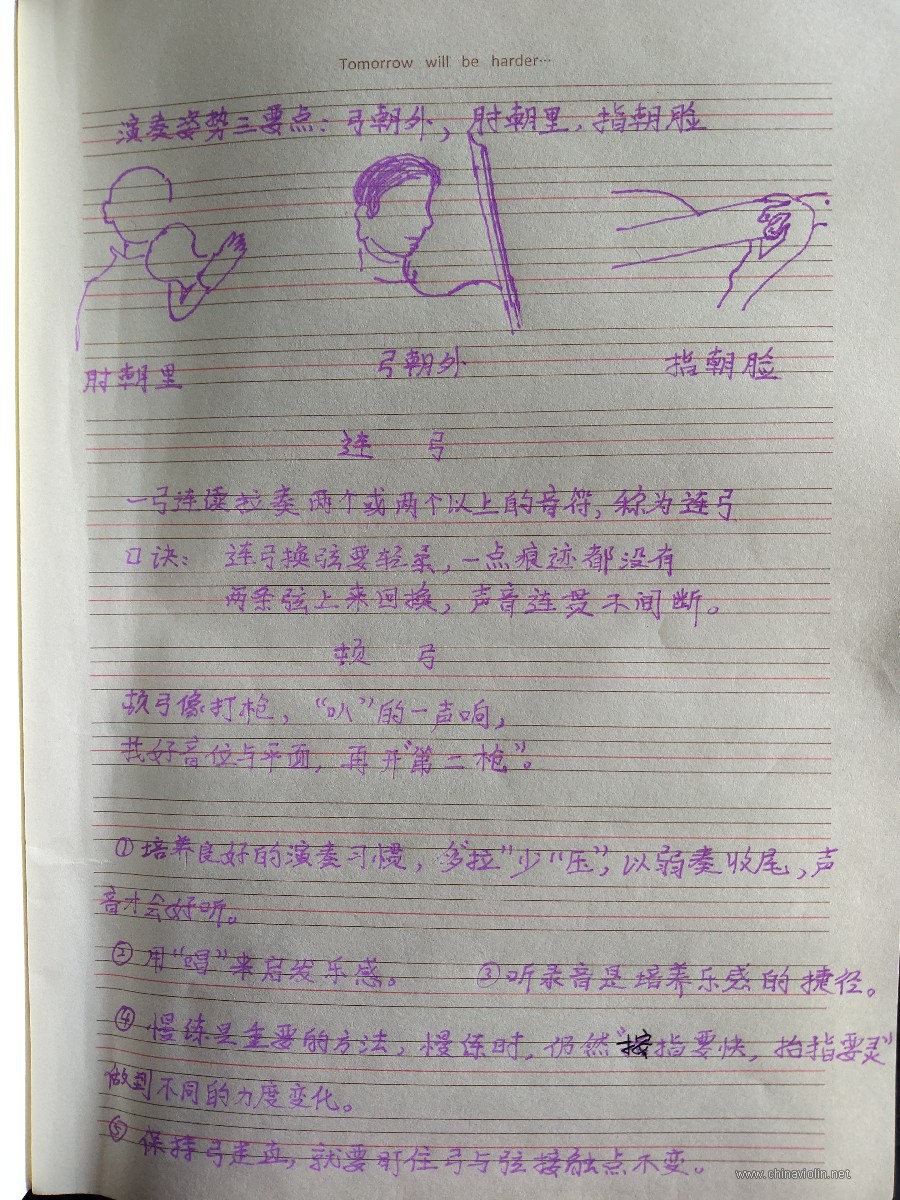 Tomorrow will be harder…
演奏姿势三要点：弓朝外，肘朝里，指朝脸
肘朝里
弓朝外
指朝脸
连 弓
一弓连续拉奏两个或两个以上的音符，称为连弓
口诀： 连弓换弦要轻柔，一点痕迹都没有
两条弦上来回换，声音连贯不间断。
顿 弓
顿弓像打枪，“叭”的一声响，
找好音位与平面，再开“第二枪”。
①培养良好的演奏习惯，多“拉”少“压”，以弱奏收尾，声
音才会好听。
②用“唱”来启发乐感。 ③听录音是培养乐感的捷径。
④慢练是重要的方法，慢练时，仍然“按指要快，抬指要灵”
做到不同的力度变化。
⑤保持弓走直，就要盯住弓与弦接触点不变。
www.chinaviolin.net